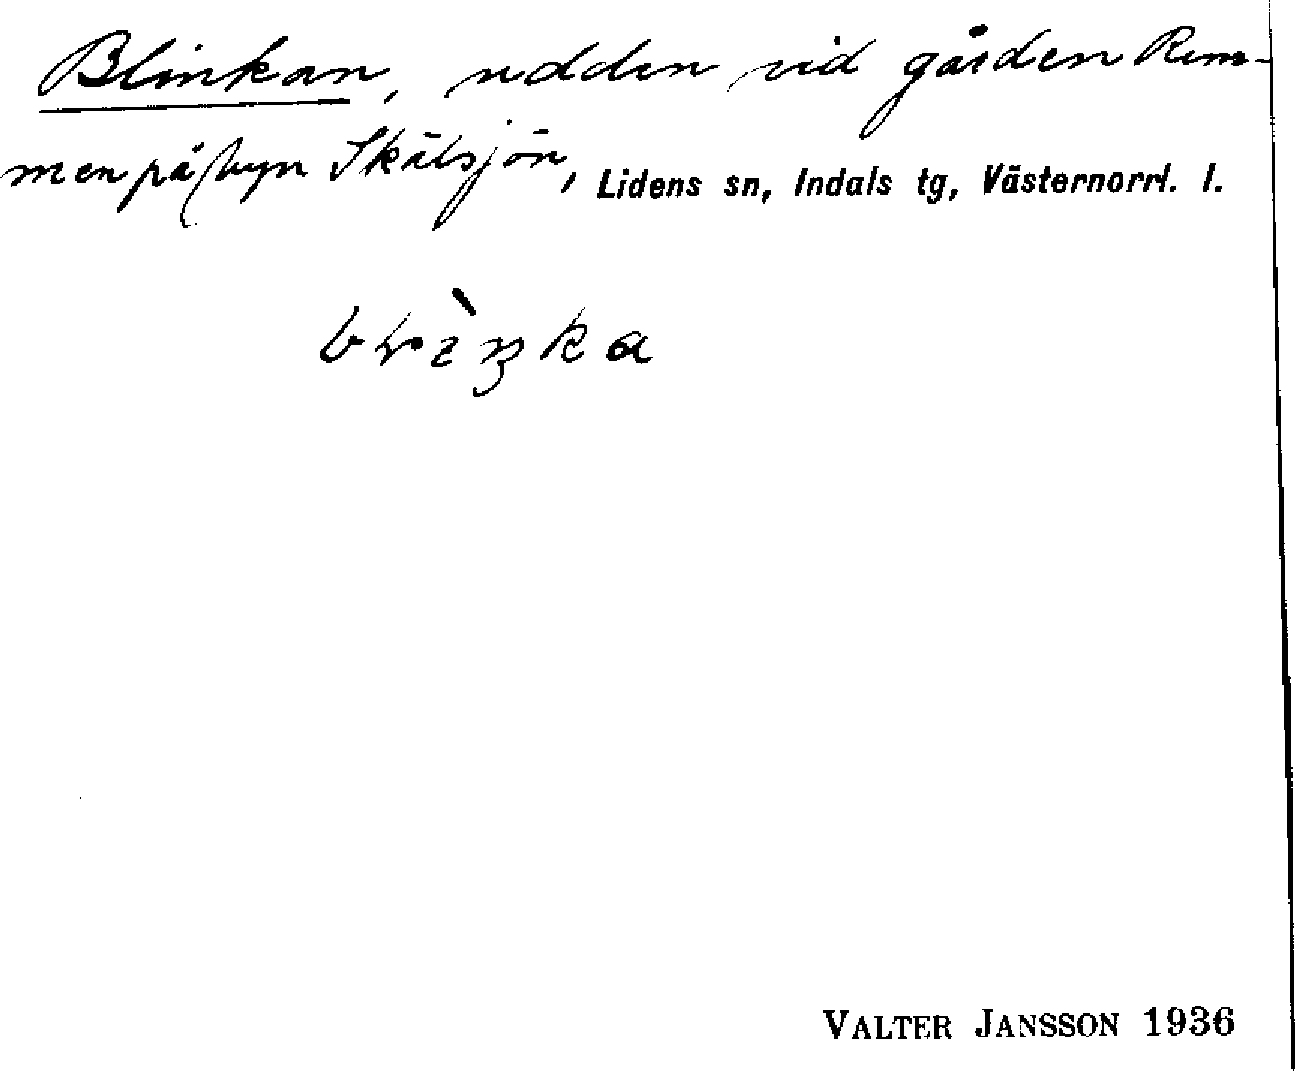 Blinkan, udden vid gården Rem-
men på byn Skälsjön, Lidens sn, Indals tg, Västernorrl. l.
VALTER JANSSON 1936